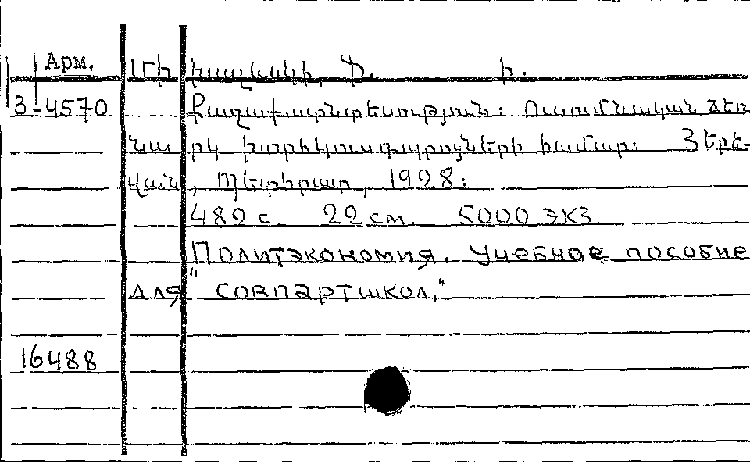 Арм. Մի խայևսկի, Ֆ. Ի.
3-4570 Քաղաքատնտեսություն: Ուսումնական ձեռ
նարկ խորհկուսդպրոցների համար: Յերե-
վան, Պետհրատ, 1928:
482 с. 22 см. 5000 экз
Политэкономия. Учебное пособие
для "совпартшкол,"
16488